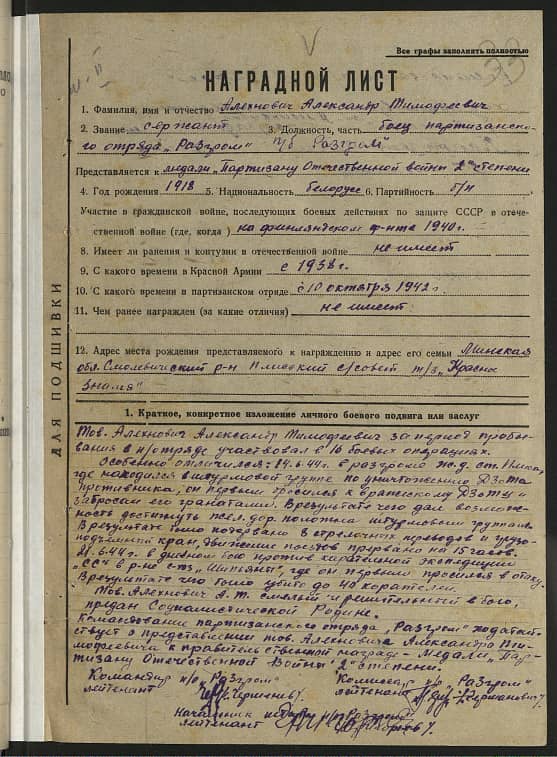 Все графы заполнять полностью
НАГРАДНОЙ ЛИСТ
1. Фамилия, имя и отчество Алехнович Александр Тимофеевич
2. Звание сержант 3. Должность, часть боец партизанско-
го отряда „Разгром" п/б Разгром"
Представляется к медали „Партизану Отечественной войны 2ой степени
4. Год рождения 1918 5. Национальность белорусс 6. Партийность б/п
Участие в гражданской войне, последующих боевых действиях по защите СССР в отече-
ственной войне (где, когда) на финляндском ф-нте 1940г.
8. Имеет ли ранения и контузии в отечественной войне не имеет
9. С какого времени в Красной Армии с 1938г.
10. С какого времени в партизанском отряде с 10 октября 1942г.
11. Чем ранее награжден (за какие отличия) не имеет
12. Адрес места рождения представляемого к награждению и адрес его семьи Минская
обл. Смолевичский р-н Плисский с/совет „Красное
знамя"
ДЛЯ ПОДШИВКИ
1. Краткое, конкретное изложение личного боевого подвига или заслуг
Тов. Алехнович Александр Тимофеевич за период пребы-
вания в п/отряде участвовал в 16 боевых операциях.
Особенно отличился: 6.44г. в разгроме ж.д. ст.
где находился в штурмовой группе по уничтожению Дзота
противника, он первым бросился к вражескому Дзоту и
забросал его гранатами. В результате чего дал возмож-
ность достигнуть жел. дор. полотна штурмовым группам.
В результате было подорвано 8 стрелочных переводов и грузо-
подъемный кран, движение поездов прервано на 15 часов.
6.44г. в дневном бою против карательной экспедиции
„СС" в р-не с-з „Шипяны", где он первым бросился в атаку.
В результате чего было убито до 40 карателей.
Тов. Алехнович А.Т. смелый и решительный в бою,
предан Социалистической Родине.
Командование партизанского отряда „Разгром" ходатай-
ствует о представлении тов. Алехновича Александра Ти-
мофеевича к правительственной награде - медали „Пар-
тизану Отечественной Войны" 2ой степени.
Командир п/о „Разгром" Комиссар п/о „Разгром"
лейтенант лейтенант
Начальник штаба п/о „Разгром"
лейтенант